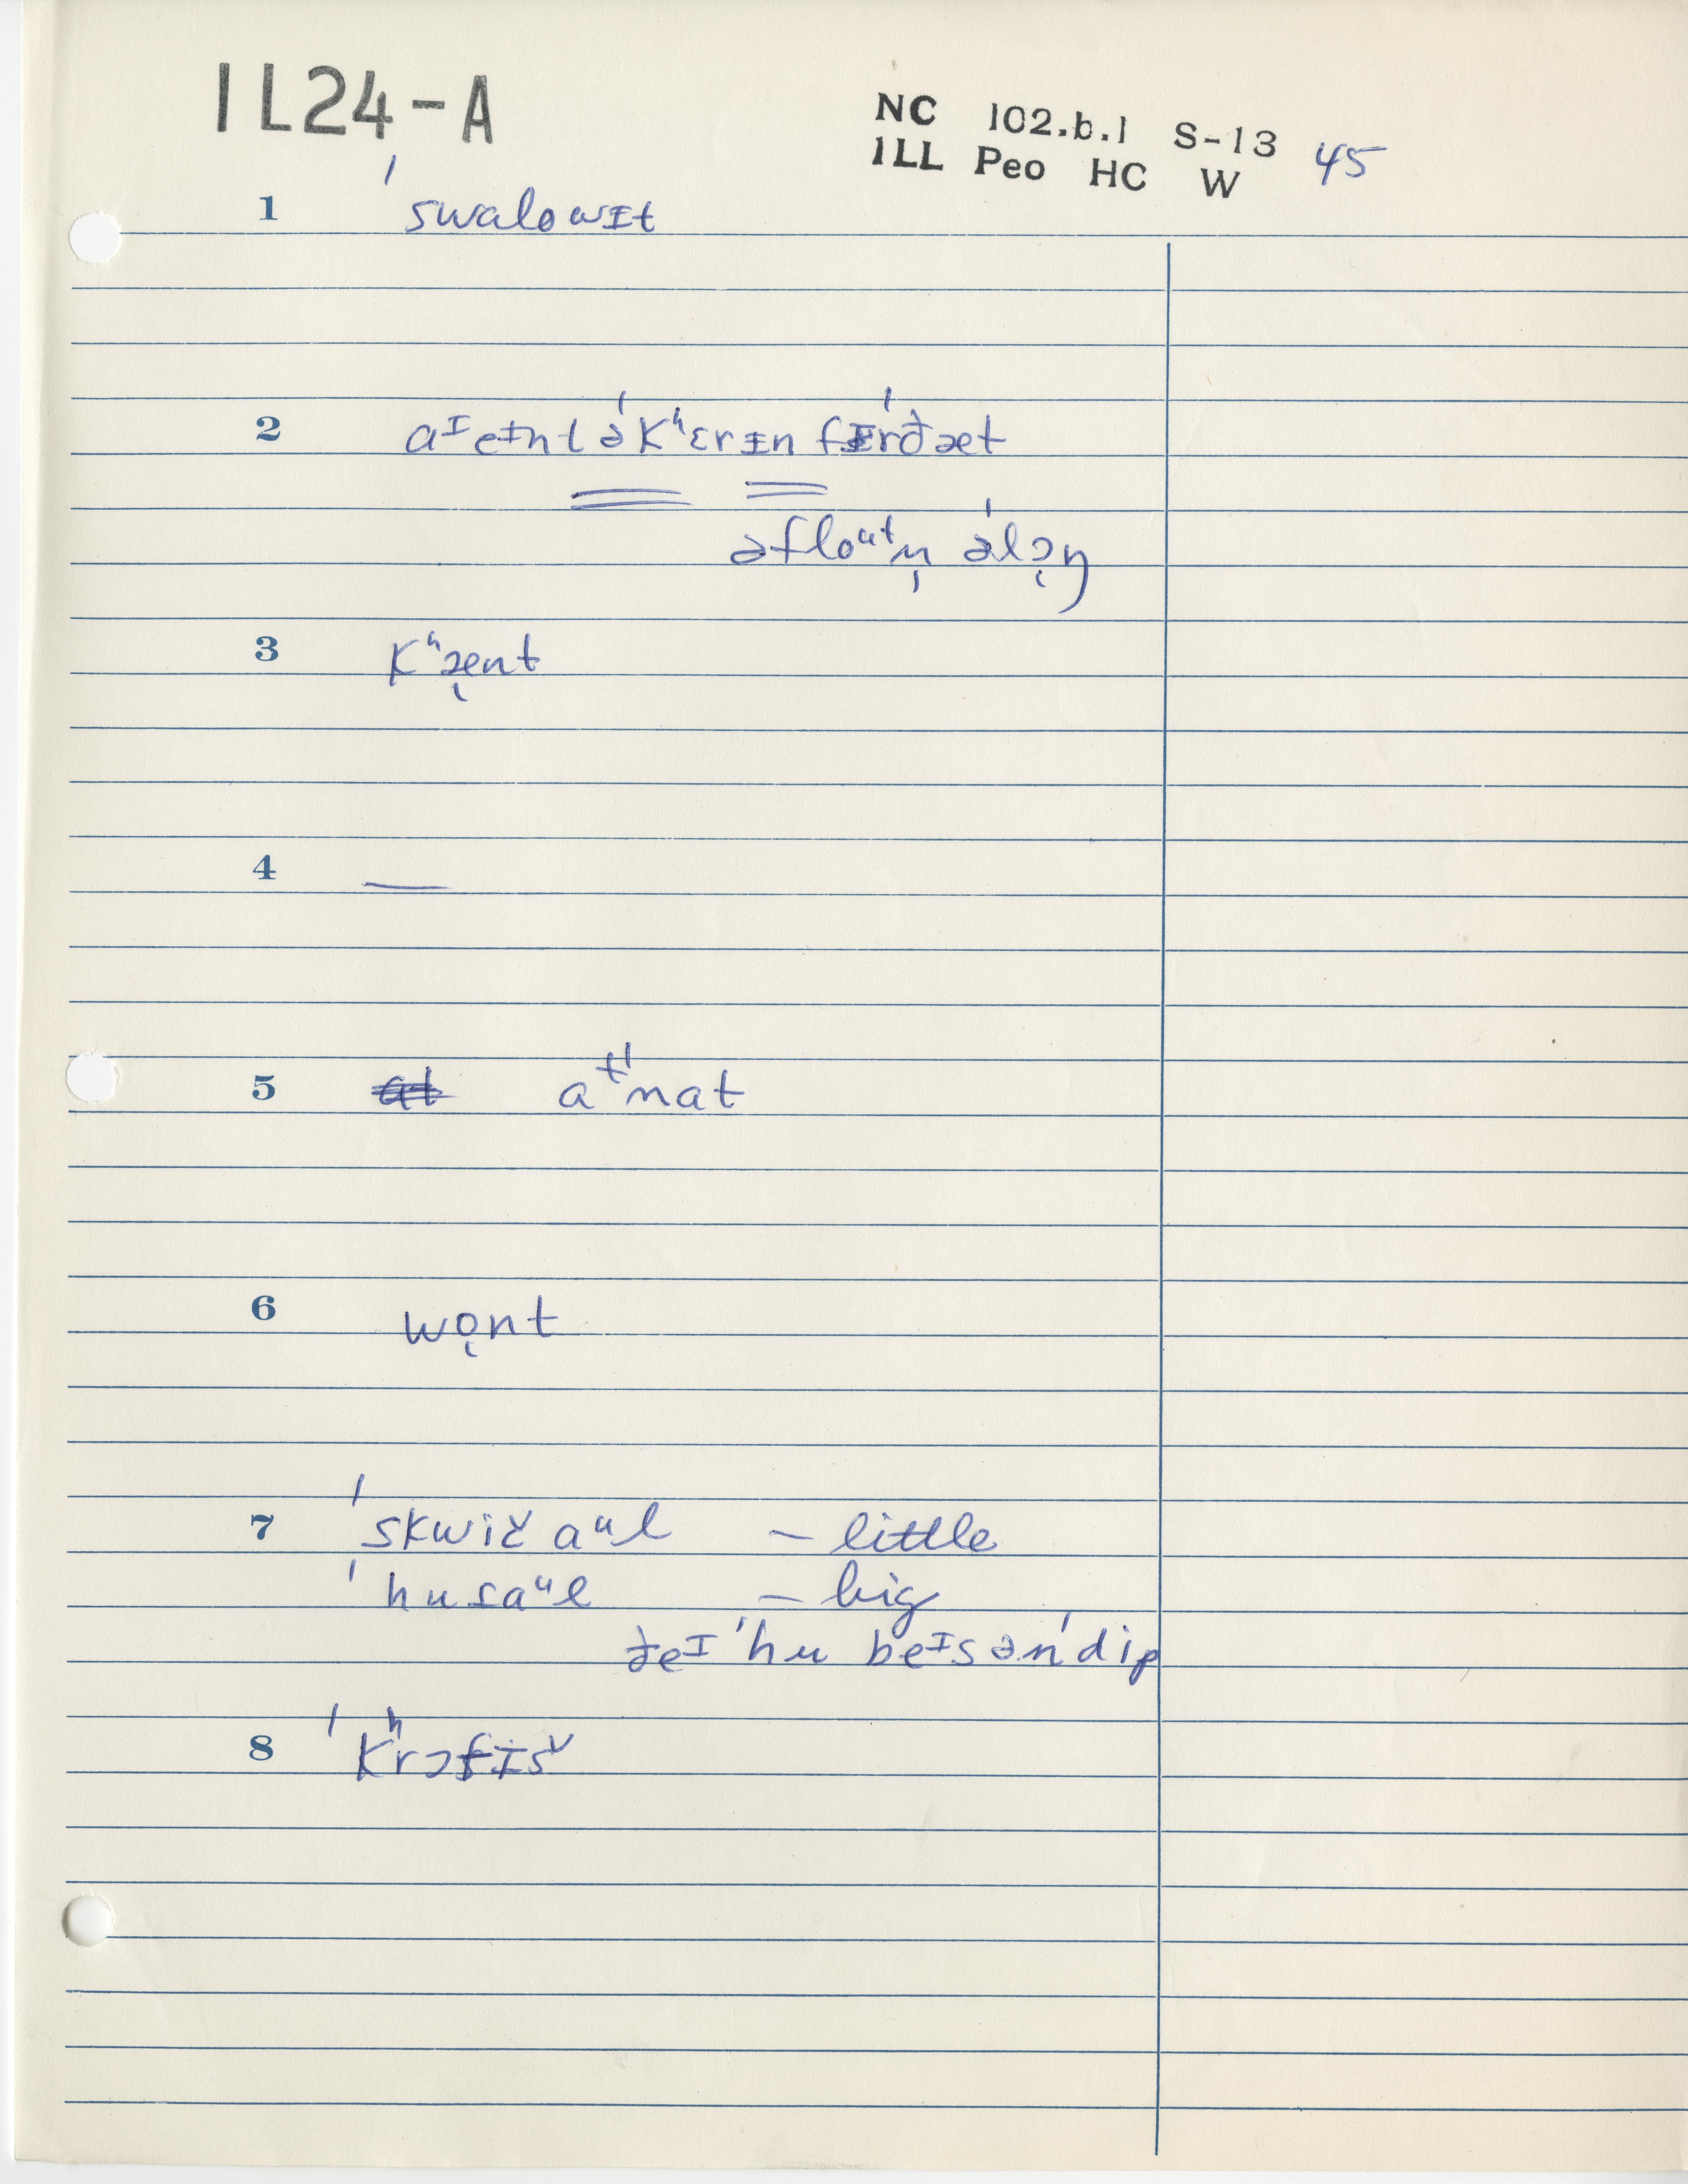 IL24-A
NC 102.b.1 S-13 45
ILL Peo HC W
1 ˈswaloωɪt
2 aᴵeɪntəˈkʰɛrɪn fɪˈrðæt
əfloᵘᵗn̩ əˈlɔ̨ŋ
3 kʰæ̨nt
4 —
5 aᵗˈnat
6 wǫnt
7 ˈskwič aᵘl – little
ˈhuṯaᵘl – big
ðeᴵ ˈhu beᴵs ənˈdip
8 ˈkʰrɔfɪš